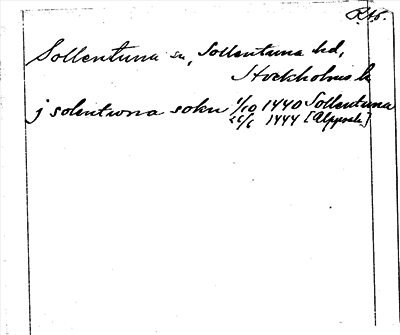 RAp.
Sollentuna sn, Sollentuna hd,
Stockholms l.
j solentwna sokn 1/10 1440 Sollentuna
25/6 1444 [Uppsala]